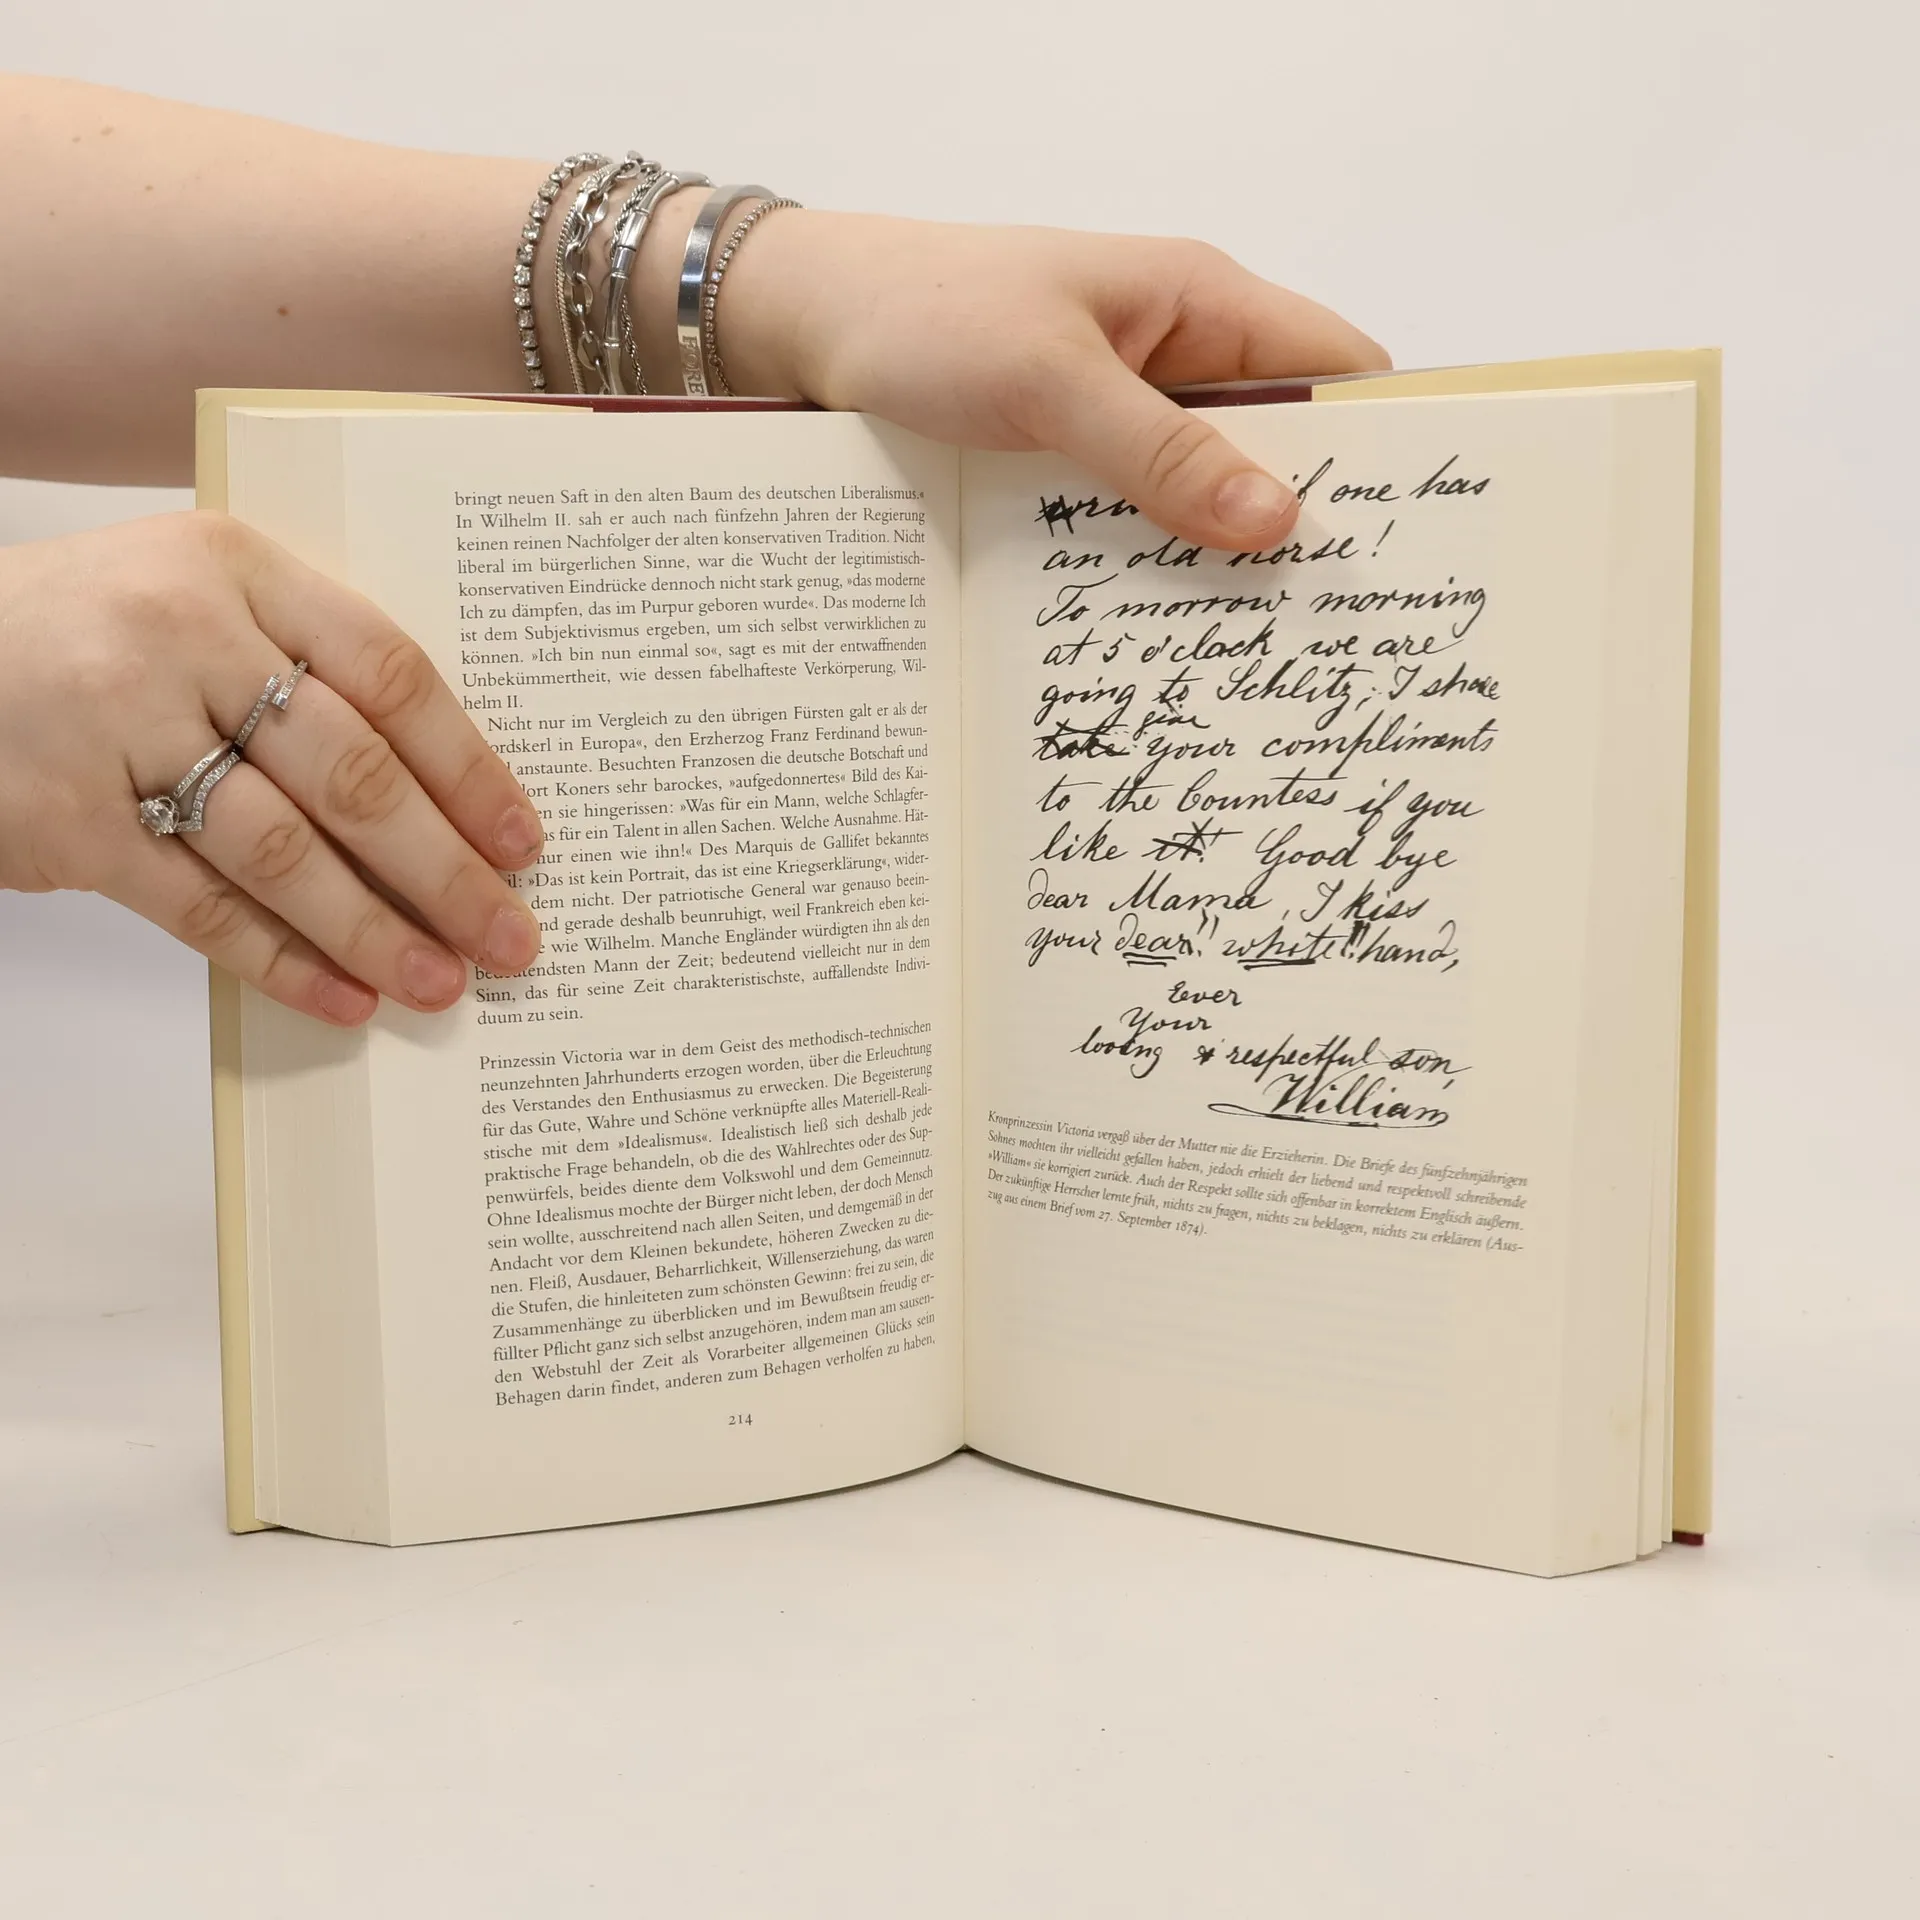 FORE
bringt neuen Saft in den alten Baum des deutschen Liberalismus.«
In Wilhelm II. sah er auch nach fünfzehn Jahren der Regierung
keinen reinen Nachfolger der alten konservativen Tradition. Nicht
liberal im bürgerlichen Sinne, war die Wucht der legitimistisch-
konservativen Eindrücke dennoch nicht stark genug, »das moderne
Ich zu dämpfen, das im Purpur geboren wurde«. Das moderne Ich
ist dem Subjektivismus ergeben, um sich selbst verwirklichen zu
können. »Ich bin nun einmal so«, sagt es mit der entwaffnenden
Unbekümmertheit, wie dessen fabelhafteste Verkörperung, Wil-
helm II.
Nicht nur im Vergleich zu den übrigen Fürsten galt er als der
ordskerl in Europa«, den Erzherzog Franz Ferdinand bewun-
anstaunte. Besuchten Franzosen die deutsche Botschaft und
dort Koners sehr barockes, »aufgedonnertes« Bild des Kai-
en sie hingerissen: »Was für ein Mann, welche Schlagfer-
as für ein Talent in allen Sachen. Welche Ausnahme. Hät-
nur einen wie ihn!« Des Marquis de Gallifet bekanntes
il: »Das ist kein Portrait, das ist eine Kriegserklärung«, wider-
dem nicht. Der patriotische General war genauso beein-
nd gerade deshalb beunruhigt, weil Frankreich eben kei-
wie Wilhelm. Manche Engländer würdigten ihn als den
bedeutendsten Mann der Zeit; bedeutend vielleicht nur in dem
Sinn, das für seine Zeit charakteristischste, auffallendste Indivi-
duum zu sein.
Prinzessin Victoria war in dem Geist des methodisch-technischen
neunzehnten Jahrhunderts erzogen worden, über die Erleuchtung
des Verstandes den Enthusiasmus zu erwecken. Die Begeisterung
für das Gute, Wahre und Schöne verknüpfte alles Materiell-Reali-
stische mit dem »Idealismus«. Idealistisch ließ sich deshalb jede
praktische Frage behandeln, ob die des Wahlrechtes oder des Sup-
penwürfels, beides diente dem Volkswohl und dem Gemeinnutz.
Ohne Idealismus mochte der Bürger nicht leben, der doch Mensch
sein wollte, ausschreitend nach allen Seiten, und demgemäß in der
Andacht vor dem Kleinen bekundete, höheren Zwecken zu die-
nen. Fleiß, Ausdauer, Beharrlichkeit, Willenserziehung, das waren
die Stufen, die hinleiteten zum schönsten Gewinn: frei zu sein, die
Zusammenhänge zu überblicken und im Bewußtsein freudig er-
füllter Pflicht ganz sich selbst anzugehören, indem man am sausen-
den Webstuhl der Zeit als Vorarbeiter allgemeinen Glücks sein
Behagen darin findet, anderen zum Behagen verholfen zu haben,
214
if one has
an old horse!
To morrow morning
at 5 o'clock we are
going to Schlitz; I shall
take give your compliments
to the Countess if you
like it! Good bye
dear Mama, I kiss
your dear!! white!! hand,
Ever
Your
loving & respectful son,
William
Kronprinzessin Victoria vergaß über der Mutter nie die Erzieherin. Die Briefe des fünfzehnjährigen
Sohnes mochten ihr vielleicht gefallen haben, jedoch erhielt der liebend und respektvoll schreibende
»William« sie korrigiert zurück. Auch der Respekt sollte sich offenbar in korrektem Englisch äußern.
Der zukünftige Herrscher lernte früh, nichts zu fragen, nichts zu beklagen, nichts zu erklären (Aus-
zug aus einem Brief vom 27. September 1874).